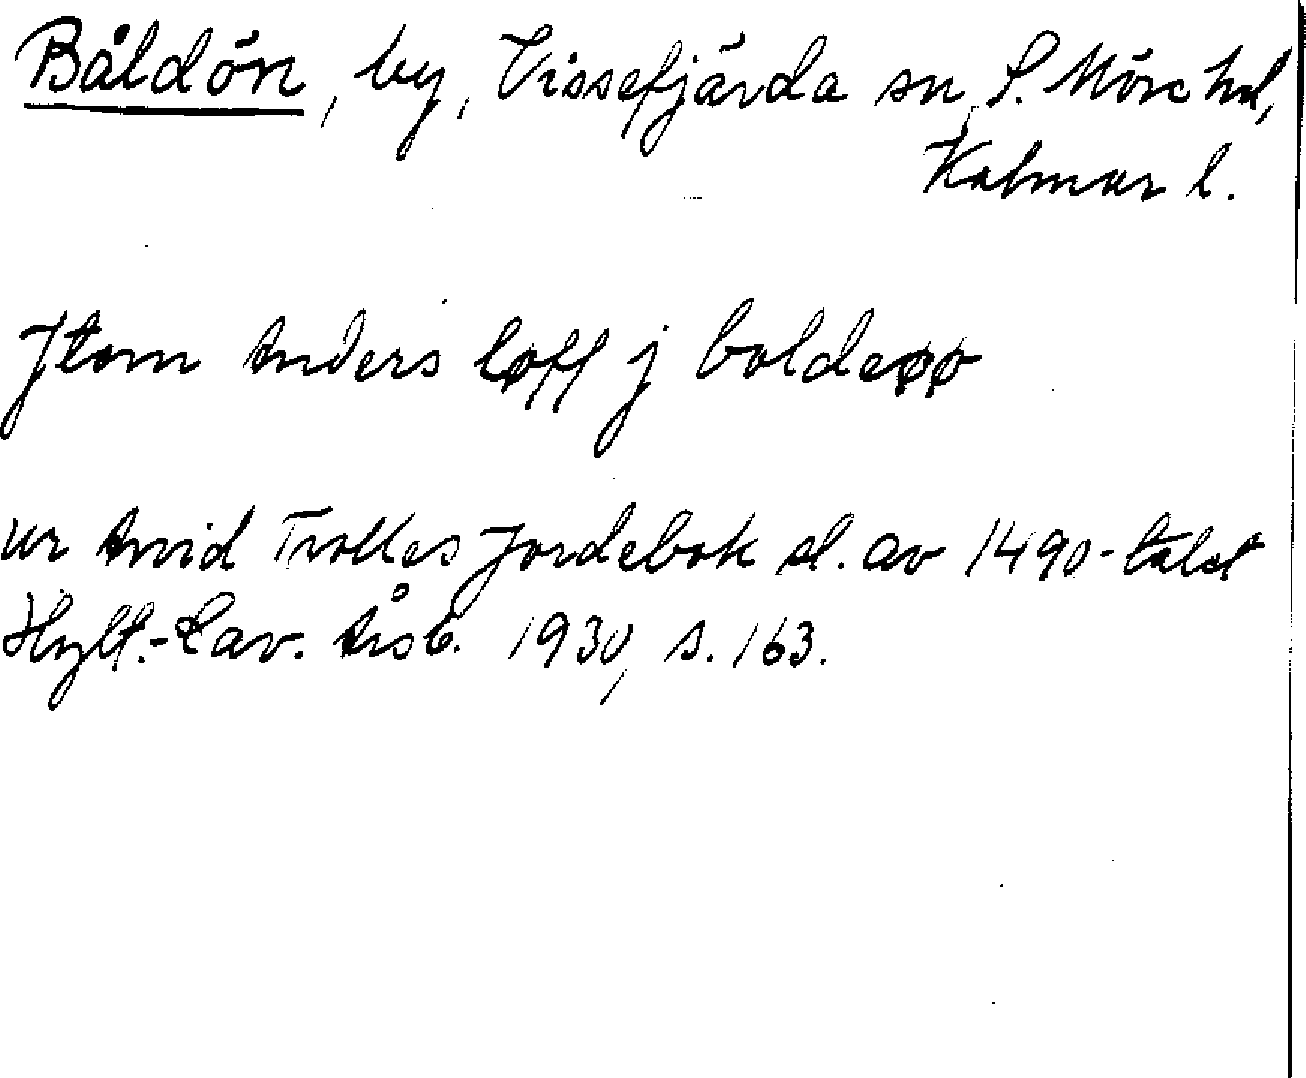 Båldön, by, Vissefjärda sn, S. Möre hd,
Kalmar l.
Jtem Anders løff j boldeøø
ur Arvid Trolles Jordebok sl. av 1490-talet
Hylt.-Cav. Årsb. 1930, s. 163.